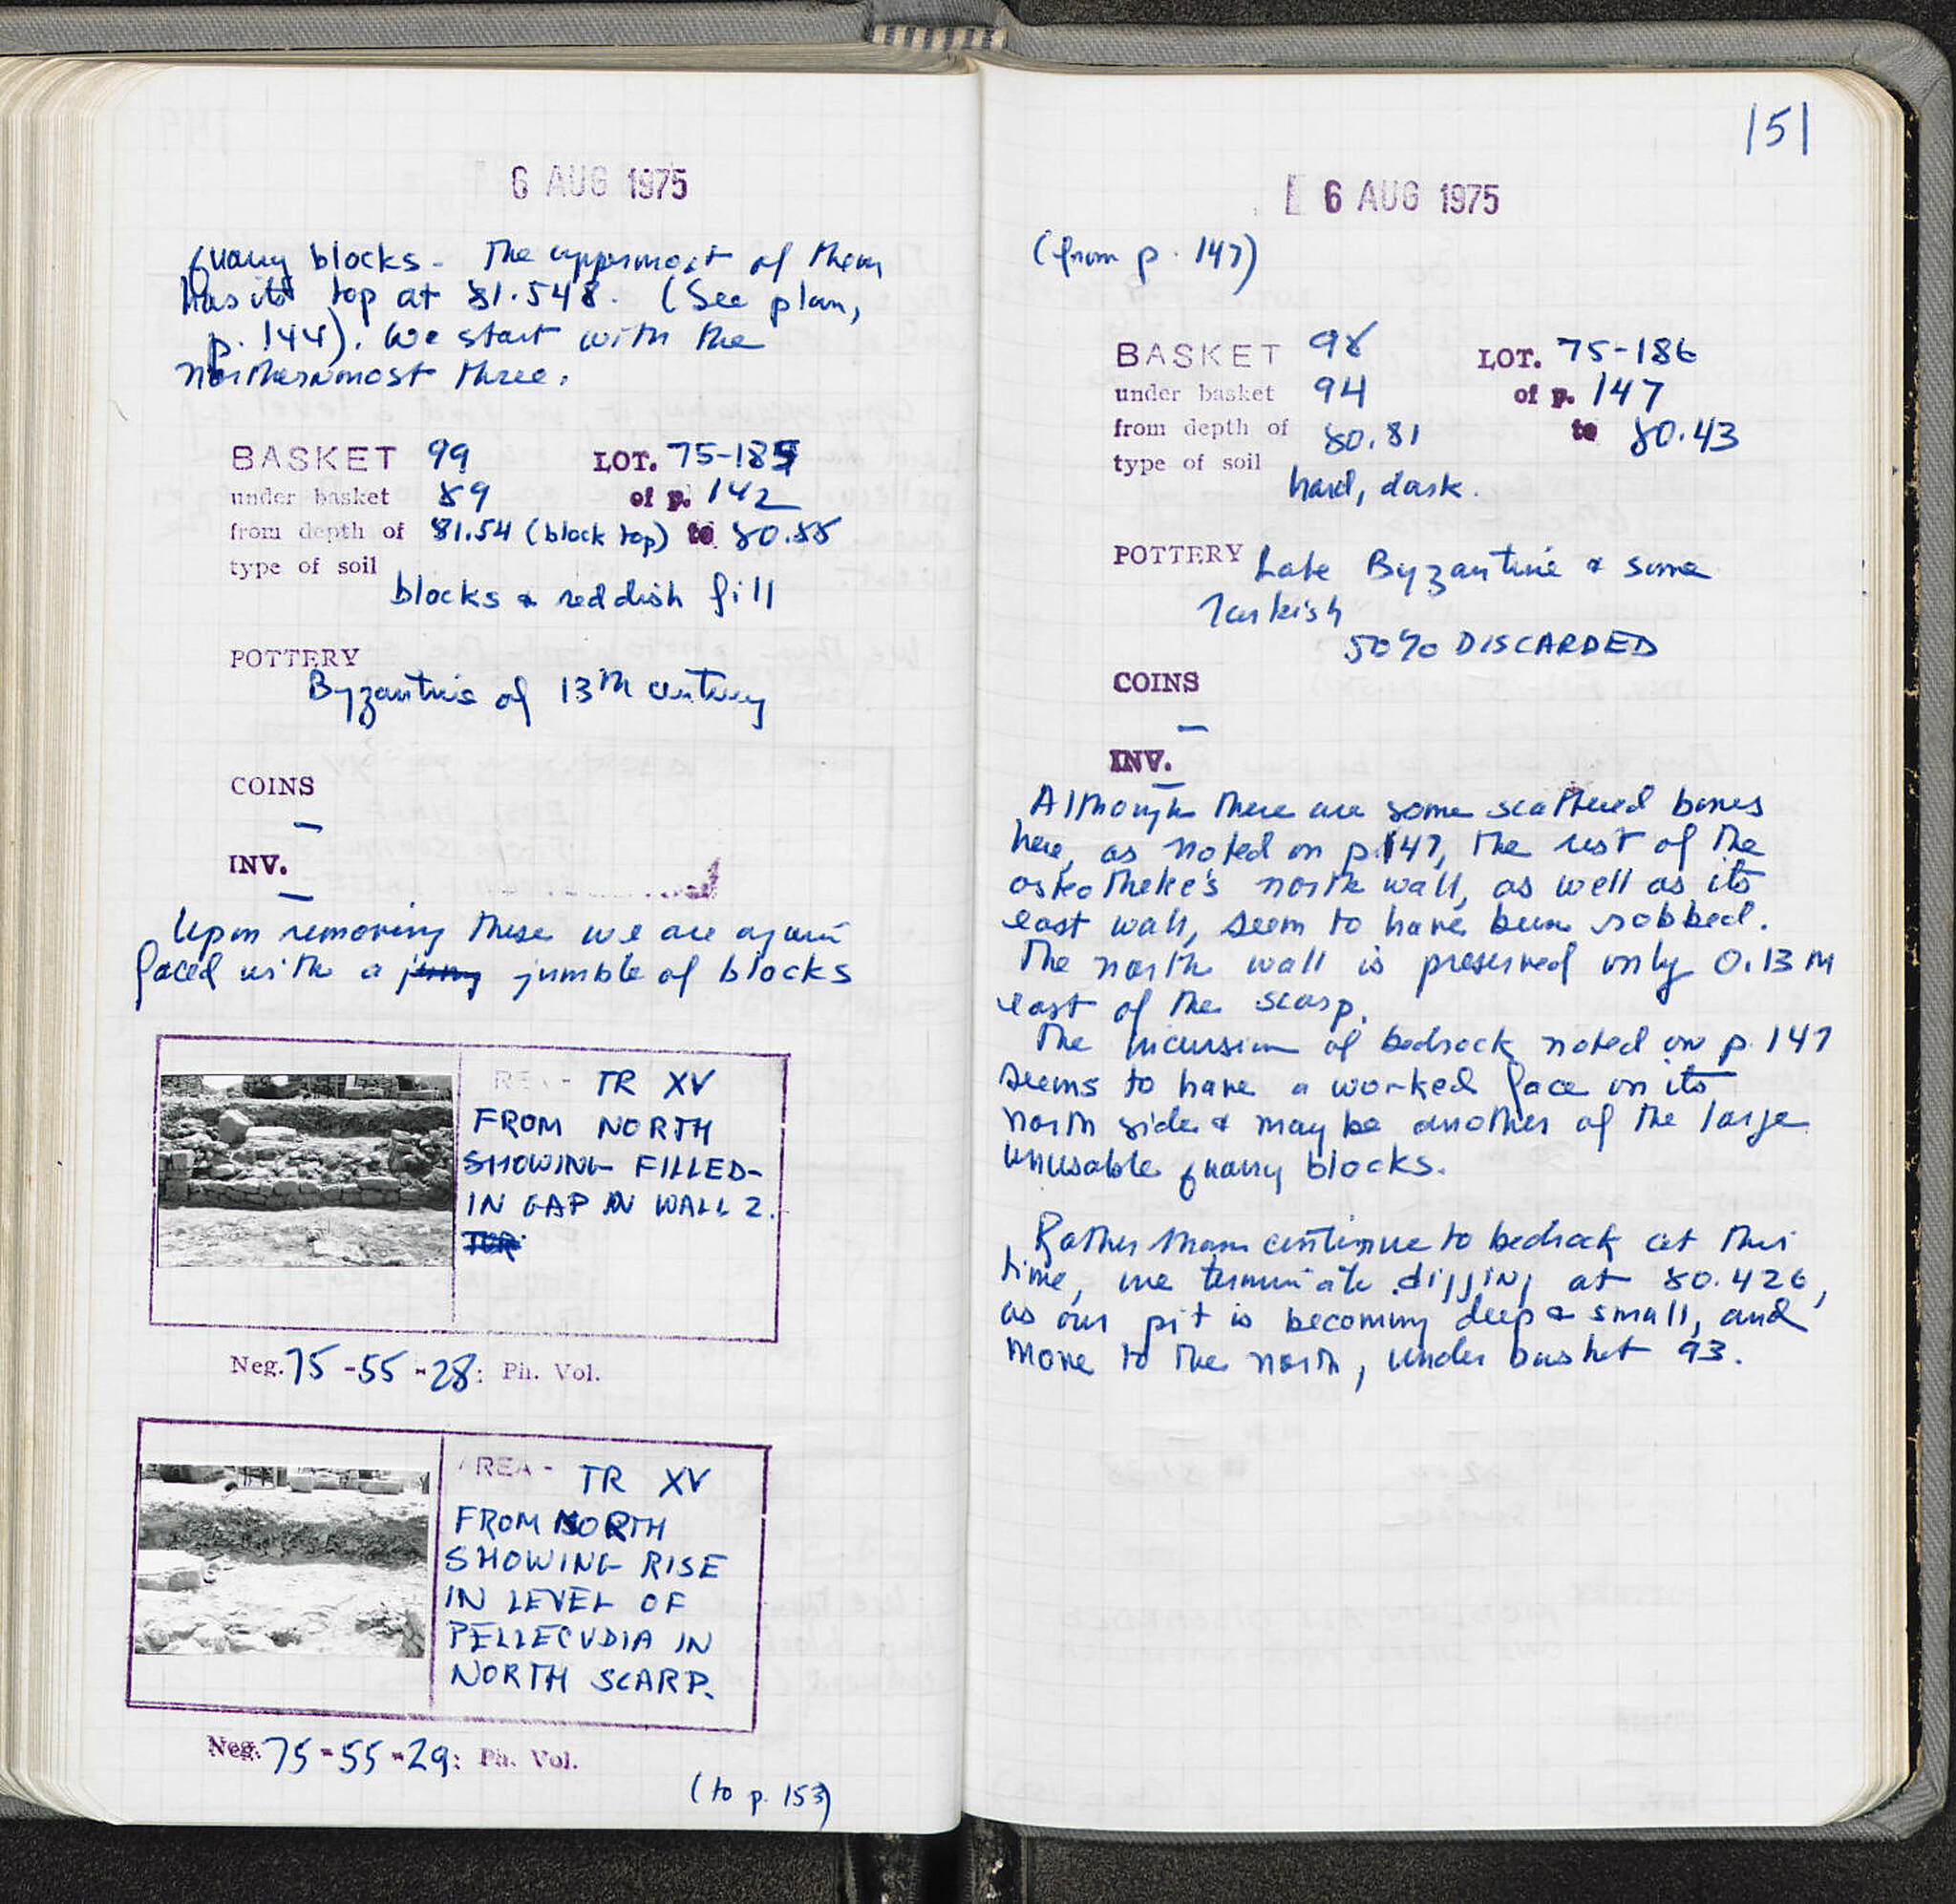 6 AUG 1975
quarry blocks. The uppermost of them
has its top at 81.548. (See plan,
p. 144). We start with the
northernmost three.
BASKET 99 LOT. 75-185
under basket 89 of p. 142
from depth of 81.54 (block top) to 80.88
type of soil
blocks & reddish fill
POTTERY
Byzantine of 13th century
COINS
—
INV.
—
Upon removing these we are again
faced with a jumble of blocks
REA - TR XV
FROM NORTH
SHOWING FILLED-
IN GAP IN WALL 2.
Neg. 75-55-28: Ph. Vol.
AREA - TR XV
FROM NORTH
SHOWING RISE
IN LEVEL OF
PELLECUDIA IN
NORTH SCARP.
Neg. 75-55-29: Ph. Vol.
(to p. 153)
151
6 AUG 1975
(from p. 147)
BASKET 98 LOT. 75-186
under basket 94 of p. 147
from depth of 80.81 to 80.43
type of soil
hard, dark.
POTTERY Late Byzantine & some
Turkish
50% DISCARDED
COINS
—
INV.
—
Although there are some scattered bones
here, as noted on p. 147, the rest of the
osteotheke's north wall, as well as its
east wall, seem to have been robbed.
The north wall is preserved only 0.13 m
east of the scarp.
The incursion of bedrock noted on p. 147
seems to have a worked face on its
north side & may be another of the large
unusable quarry blocks.
Rather than continue to bedrock at this
time, we terminate digging at 80.426,
as our pit is becoming deep & small, and
move to the north, under basket 93.